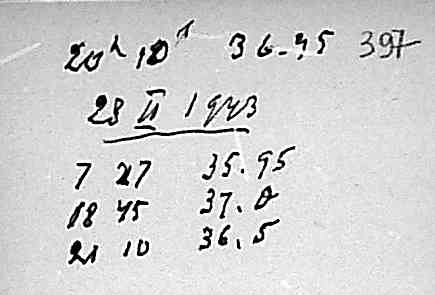 20h 10' 36.45 397
28 II 1943
7 27 35.95
18 45 37.0
21 10 36.5